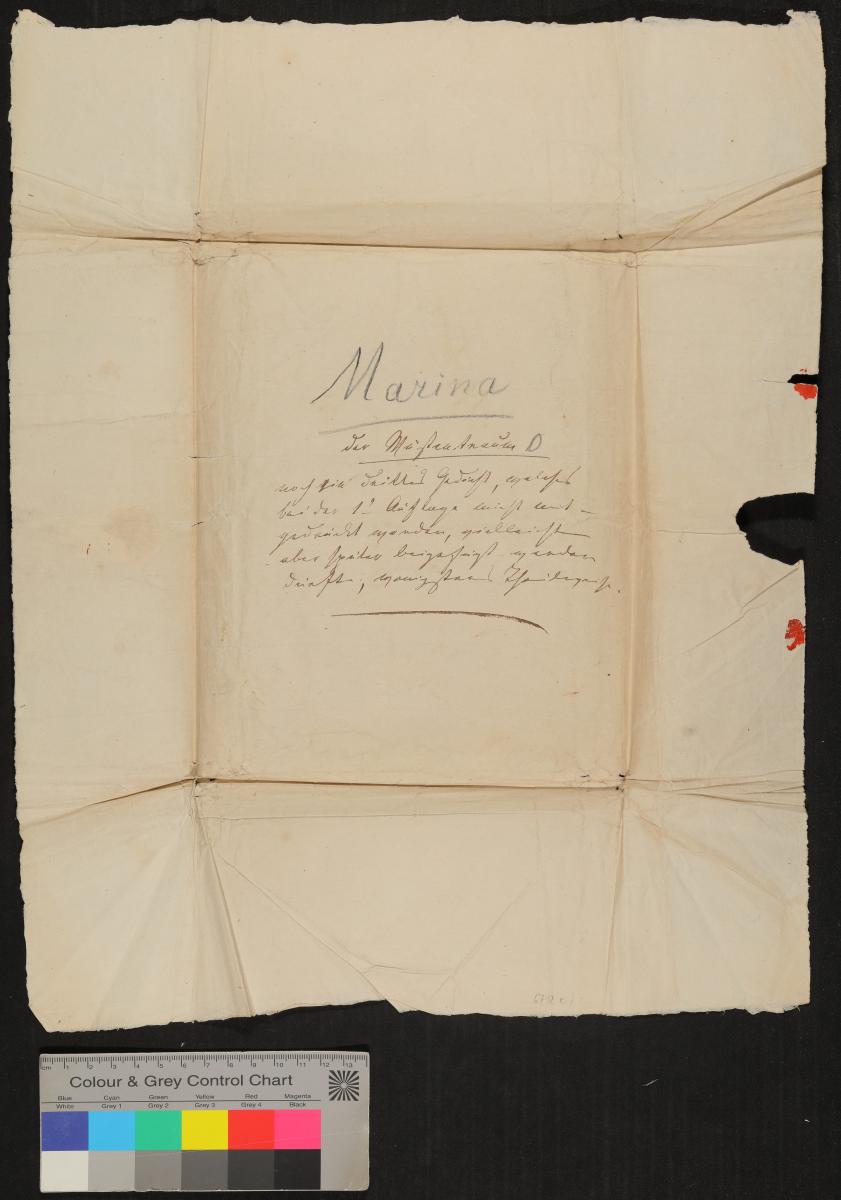 Marina
der Wüstentraum D
noch ein drittes Gedicht, welches
bei der 1n Auflage nicht mit-
gedruckt worden, vielleicht
aber später beigefügt werden
dürfte, wenigstens Theilweise.
672 c
Colour & Grey Control Chart
cm 1 2 3 4 5 6 7 8 9 10 11 12 13
Blue Cyan Green Yellow Red Magenta
White Grey 1 Grey 2 Grey 3 Grey 4 Black